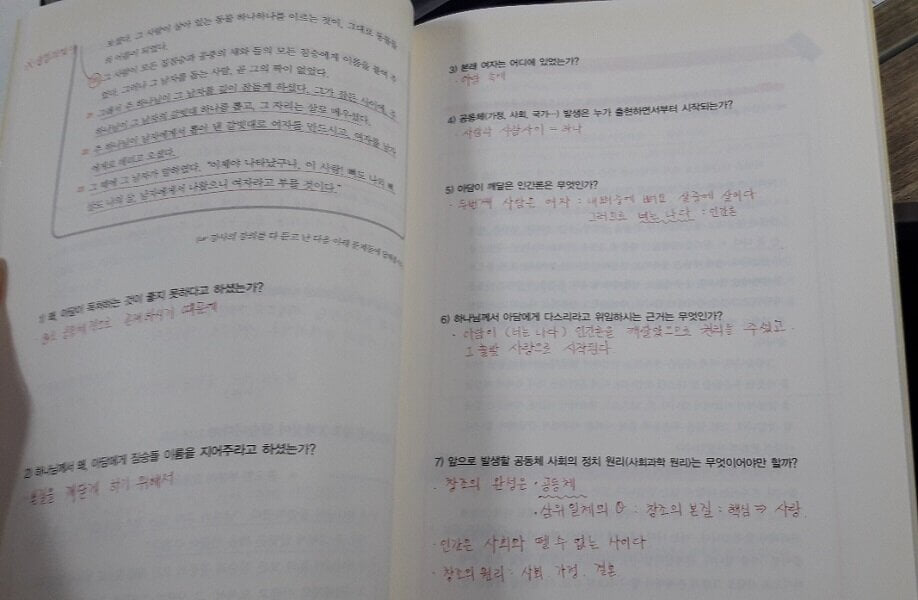 보셨다. 그 사람이 살아 있는 동물 하나하나를 이르는 것이, 그대로 동물들
의 이름이 되었다.
그 사람이 모든 집짐승과 공중의 새와 들의 모든 짐승에게 이름을 붙여 주
었다. 그러나 그 남자를 돕는 사람, 곧 그의 짝이 없었다.
그래서 주 하나님이 그 남자를 깊이 잠들게 하셨다. 그가 잠든 사이에, 주
하나님이 그 남자의 갈빗대 하나를 뽑고, 그 자리는 살로 메우셨다.
주 하나님이 남자에게서 뽑아 낸 갈빗대로 여자를 만드시고, 여자를 남자
에게로 데리고 오셨다.
그 때에 그 남자가 말하였다. "이제야 나타났구나, 이 사람! 뼈도 나의 뼈,
살도 나의 살, 남자에게서 나왔으니 여자라고 부를 것이다."
강사의 강의를 다 듣고 난 다음 아래 문제들에
1) 왜, 아담이 독처하는 것이 좋지 못하다고 하셨는가?
공동체적으로 존재하시기 때문에
2) 하나님께서 왜, 아담에게 짐승들 이름을 지어주라고 하셨는가?
· 본질을 깨닫게 하기 위해서
3) 본래 여자는 어디에 있었는가?
· 아담 속에
4) 공동체(가정, 사회, 국가…) 발생은 누가 출현하면서부터 시작되는가?
· 사람과 사람사이 - 하나
5) 아담이 깨달은 인간론은 무엇인가?
· 두번째 사람은 여자 : 내 뼈중에 뼈요 살중에 살이다
그러므로 너는 나다 : 인간론
6) 하나님께서 아담에게 다스리라고 위임하시는 근거는 무엇인가?
· 아담이 (너는 나다) 인간론을 깨달았으므로 권리를 주셨고.
그 출발 사랑으로 시작된다
7) 앞으로 발생할 공동체 사회의 정치 원리(사회과학 원리)는 무엇이어야만 할까?
· 창조의 완성은 · 공동체
· 삼위일체의 θ : 창조의 본질 : 핵심 ⇒ 사랑.
· 인간은 사회와 뗄 수 없는 사이다
· 창조의 원리 : 사회. 가정. 결혼